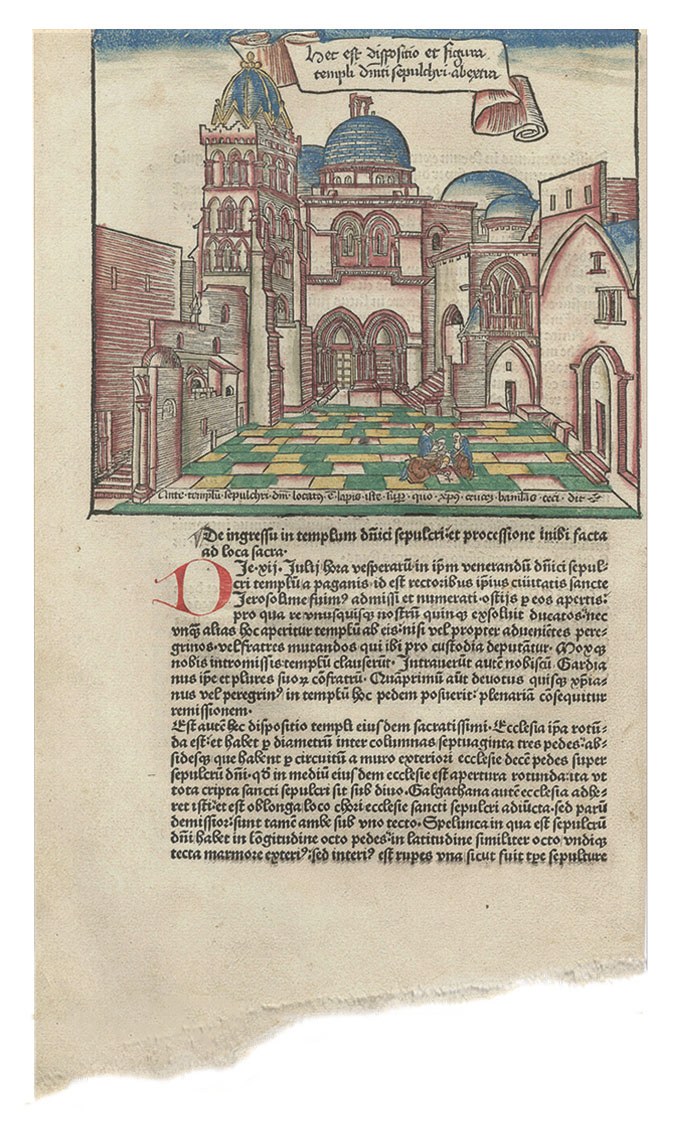 Hec est dispositio et figura
templi dñici sepulchri abextra
Ante templū sepulchri dñi locatꝰ ē lapis iste super quo xp̄us crucez baiulās ceci dit
De ingressu in templum dñici sepulcri et processione inibi facta
ad loca sacra.
DIe .xij. Julij hora vesperarū in ip̄m venerandū dñici sepul⸗
cri templū a paganis id est rectoribus ip̄ius ciuitatis sancte
Jerosolime fuimꝰ admissi et numerati ostijs ꝑ eos apertis:
pro qua re vnusquisqꝫ nostrū quinqꝫ exsoluit ducatos: nec
vnqꝫ alias hoc aperitur templū ab eis: nisi vel propter adueniētes pere⸗
grinos vel fratres mutandos qui ibi pro custodia deputātur. Moxqꝫ
nobis intromissis templū clauserūt. Intrauerūt autē nobiscū Gardia
nus ip̄e et plures suoꝝ cōfratrū. Quāprimū aūt deuotus quisqꝫ xp̄ia⸗
nus vel peregrinꝰ in templū hoc pedem posuerit: plenariā cōsequitur
remissionem.
Est autē hec dispositio templi eius dem sacratissimi. Ecclesia ip̄a rotū⸗
da est: et habet ꝑ diametrū inter columnas septuaginta tres pedes: ab⸗
sidesqꝫ que habent ꝑ circuitū a muro exteriori ecclesie decē pedes super
sepulcrū dñi. qđ in mediū eius dem ecclesie est apertura rotunda: ita vt
tota cripta sancti sepulcri sit sub diuo. Galgathana autē ecclesia adhe⸗
ret isti: et est oblonga loco chori ecclesie sancti sepulcri adiūcta. sed parū
demissior: sunt tamē ambe sub vno tecto. Spelunca in qua est sepulcrū
dñi habet in lōgitudine octo pedes: in latitudine similiter octo vndiqꝫ
tecta marmore exteriꝰ: sed interiꝰ est rupes vna sicut fuit tꝑe sepulture